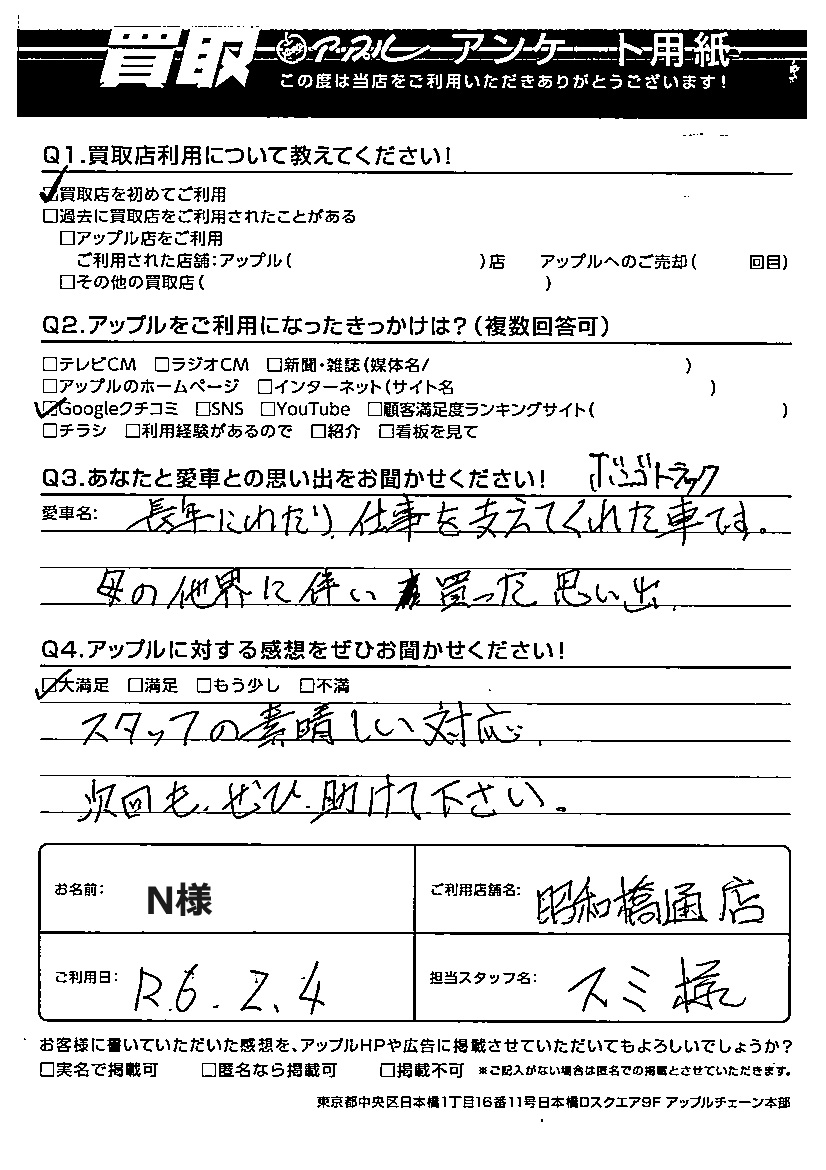 買取 アップル アンケート用紙
この度は当店をご利用いただきありがとうございます!
Q1.買取店利用について教えてください!
☑買取店を初めてご利用
□過去に買取店をご利用されたことがある
□アップル店をご利用
ご利用された店舗:アップル( )店 アップルへのご売却( 回目)
□その他の買取店( )
Q2.アップルをご利用になったきっかけは?(複数回答可)
□テレビCM □ラジオCM □新聞・雑誌(媒体名/ )
□アップルのホームページ □インターネット(サイト名 )
☑Googleクチコミ □SNS □YouTube □顧客満足度ランキングサイト( )
□チラシ □利用経験があるので □紹介 □看板を見て
Q3.あなたと愛車との思い出をお聞かせください! ボンゴトラック
愛車名: 長年にわたり、仕事を支えてくれた車です。
母の他界に伴い 買った思い出、
Q4.アップルに対する感想をぜひお聞かせください!
☑大満足 □満足 □もう少し □不満
スタッフの素晴しい対応、
次回も、ぜひ、助けて下さい。
お名前: N様 ご利用店舗名: 昭和橋通店
ご利用日: R.6.2.4 担当スタッフ名: スミ様
お客様に書いていただいた感想を、アップルHPや広告に掲載させていただいてもよろしいでしょうか?
□実名で掲載可 □匿名なら掲載可 □掲載不可 ※ご記入がない場合は匿名での掲載とさせていただきます。
東京都中央区日本橋1丁目16番11号日本橋Dスクエア9F アップルチェーン本部